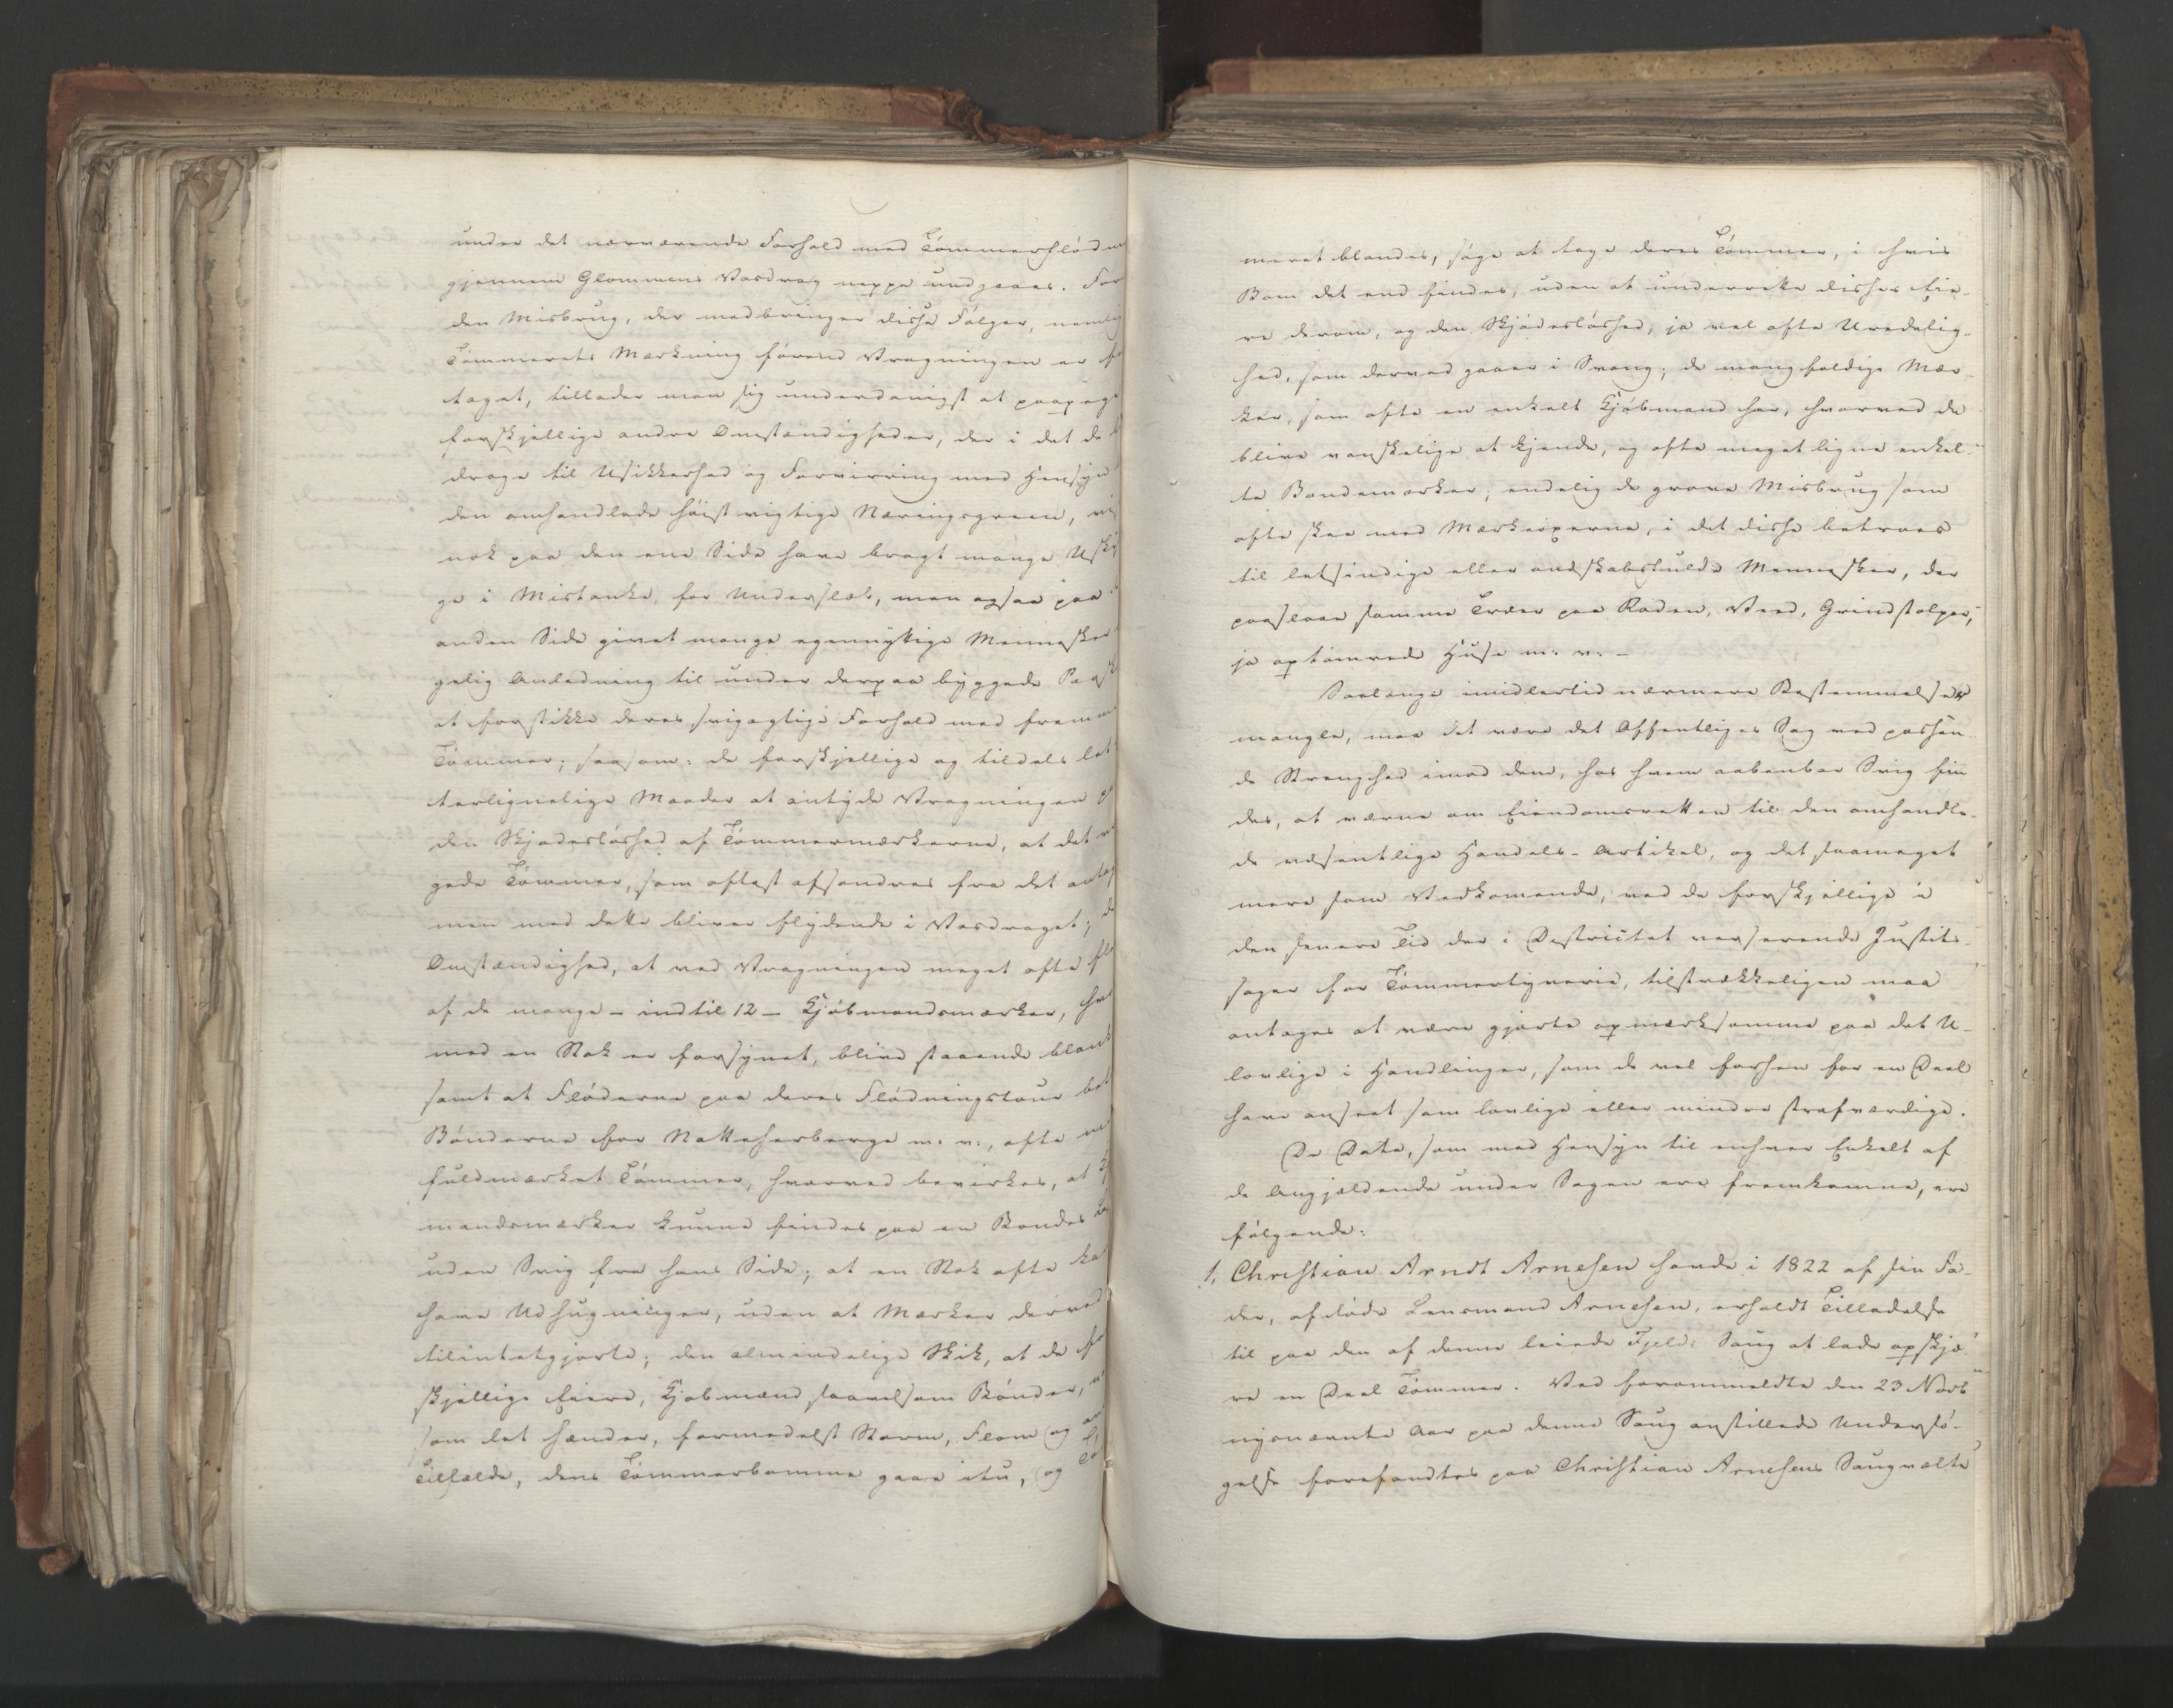 under det nærværende Forhold med Tømmerflødn
gjennem Glommens Vasdrag neppe undgaaes. For
den Misbrug, der medbringer disse Følger, nemlig
Tømmerets Mærkning førend Vragningen er fo
taget, tillader man sig underdanigst at paapege
forskjellige andre Omstændigheder, der i det de b
drage til Usikkerhed og Forvirring med Hensyn
den omhandlede høist vigtige Næringsgreen, vis
nok paa den ene Side have bragt mange Uskyl
ge i Mistanke for Underslæb, men ogsaa paa
anden Side givet mange egennyttige Mennesker
gelig Anledning til under derpaa byggede Paask
at forstikke deres svigagtige Forhold med fremm
Tømmer; saasom: de forskjellige og tildels let
terlignelige Maader at antyde Vragningen p
den Skjødesløshed af Tømmermærkerne, at det v
gede Tømmer, som oftest afsondres fra det antag
men med dette bliver flydende i Vasdraget; de
Omstændighed, at ved Vragningen meget ofte fl
af de mange - indtil 12 - Kjøbmandsmærker, hvo
med en Stok er forsynet, blive staaende blank
samt at Fløderne paa deres Flødningstour bet
Bønderne for Natteherberge m: v:, ofte me
fuldmærket Tømmer, hvorved bevirkes, at Kj
mandsmærker kunne findes paa en Bondes
uden Svig fra hans Side; at en Stok ofte ka
have Udhugninger, uden at Mærker derved
tilintetgjorte; den almindelige Skik, at de fo
skjellige Eiere, Kjøbmænd saavelsom Bønder,
som det hænder, formedelst Storm, Flom og an
Tilfælde, dens Tømmerbomme gaae itu, og Tø
meret blandes, søge at tage deres Tømmer, i hvis
Bom det end findes, uden at underrette disses Eie-
re derom, og den Skjødesløshed, ja vel ofte Uredelig-
hed, som derved gaaer i Svang; de mangfoldige Mær-
ker, som ofte en enkelt Kjøbmand har, hvorved de
blive vanskelige at kjende, og ofte meget ligne enkel-
te Bondemærker; endelig de grove Misbrug som
ofte skee med Mærkeøxerne, i det disse betroes
til letsindige eller ondskabsfulde Mennesker, der
paaslaae samme Træer paa Roden, Veed, Grindstolper,
ja optømrede Huse m: v: -
Saalænge imidlertid nærmere Bestemmelser
mangle, maa det være det Offentliges Sag med passen
de Strenghed imod dem, hos hvem aabenbar Svig fin
des, at værne om Eiendomsretten til den omhandle-
de væsentlige Handels-Artikel, og det saameget
mere som Vedkomende, ved de forskjellige i
den senere Tid der i Districtet verserende Justits-
sager for Tømmertyverie, tilstrækkeligen maa
antages at være gjorte opmærksomme paa det U-
lovlige i Handlinger, som de vel forhen for en Deel
have anseet som lovlige eller mindre strafværdige.
De Data, som med Hensyn til enhver Enkelt af
de Angjældende under Sagen ere fremkomne, ere
følgende:
1, Christian Arndt Arnesen havde i 1822 af sin Fa-
der, afdøde Lensmand Arnesen, erholdt Tilladelse
til paa den af denne leiede Fjeld: Saug at lade opskjæ-
re en Deel Tømmer. Ved forommeldte den 23 Novb
nysnævnte Aar paa denne Saug anstillede Undersø-
gelse forefandtes paa Christian Arnesens Saugvælte